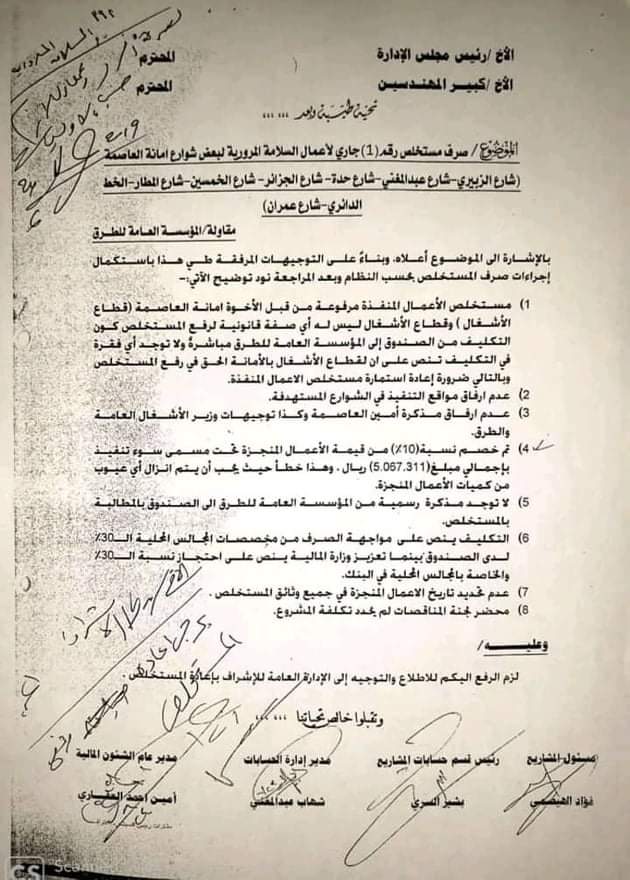 الأخ/رئيس مجلس الإدارة المحترم
الأخ/كبير المهندسين المحترم
تحية طيبة وبعد ... ...
الموضوع/ صرف مستخلص رقم(1) جاري لأعمال السلامة المرورية لبعض شوارع امانة العاصمة
(شارع الزبيري-شارع عبدالمغني-شارع حدة- شارع الجزائر- شارع الخمسين-شارع المطار-الخط
الدائري-شارع عمران)
مقاولة/المؤسسة العامة للطرق
بالإشارة الى الموضوع أعلاه، وبناءً على التوجيهات المرفقة طي هذا باستكمال
إجراءات صرف المستخلص بحسب النظام وبعد المراجعة نود توضيح الآتي:-
1) مستخلص الأعمال المنفذة مرفوعة من قبل الأخوة امانة العاصمة (قطاع
الأشغال ) وقطاع الأشغال ليس له أي صفة قانونية لرفع المستخلص كون
التكليف من الصندوق إلى المؤسسة العامة للطرق مباشرة ولا توجد أي فقرة
في التكليف تنص على ان لقطاع الأشغال بالأمانة الحق في رفع المستخلص
وبالتالي ضرورة إعادة استمارة مستخلص الاعمال المنفذة.
2) عدم ارفاق مواقع التنفيذ في الشوارع المستهدفة.
3) عدم ارفاق مذكرة أمين العاصمة وكذا توجيهات وزير الأشغال العامة
والطرق.
4) تم خصم نسبة(10٪) من قيمة الأعمال المنجزة تحت مسمى سوء تنفيذ
بإجمالي مبلغ(5.067.311) ريال . وهذا خطأ حيث يجب أن يتم انزال أي عيوب
من كميات الأعمال المنجزة.
5) لا توجد مذكرة رسمية من المؤسسة العامة للطرق الى الصندوق بالمطالبة
بالمستخلص.
6) التكليف ينص على مواجهة الصرف من مخصصات المجالس المحلية الـ30٪
لدى الصندوق بينما تعزيز وزارة المالية ينص على احتجاز نسبة الـ30٪
والخاصة بالمجالس المحلية في البنك.
7) عدم تحديد تاريخ الاعمال المنجزة في جميع وثائق المستخلص .
8) محضر لجنة المناقصات لم يحدد تكلفة المشروع.
وعليـــه/
لزم الرفع اليكم للاطلاع والتوجيه إلى الإدارة العامة للإشراف بإعادة المستخلص .
وتقبلوا خالص تحياتنا ... ...
مسئول المشاريع رئيس قسم حسابات المشاريع مدير إدارة الحسابات مدير عام الشئون المالية
فؤاد الهيصمي بشير السري شهاب عبدالمغني أمين احمد العقاري
CS Scan